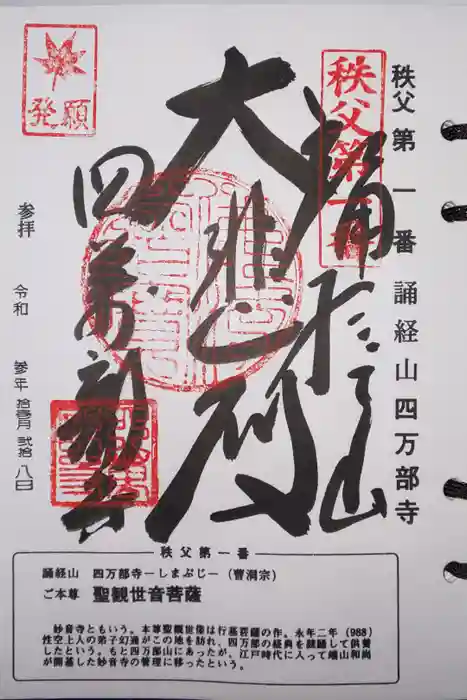 秩父第一番 誦経山四万部寺
秩父第一番
誦経山
大悲殿
四萬部寺
発願
参拝 令和 参年 拾壱月 弐拾八日
秩父第一番
誦経山 四万部寺ーしまぶじー（曹洞宗）
ご本尊 聖観世音菩薩
妙音寺ともいう。本尊聖観世音は行基菩薩の作。永年二年（988）
性空上人の弟子幻通がこの地を訪れ、四万部の経典を読誦して供養
したという。もと四万部山にあったが、江戸時代に入って端山和尚
が開基した妙音寺の管理に移ったという。